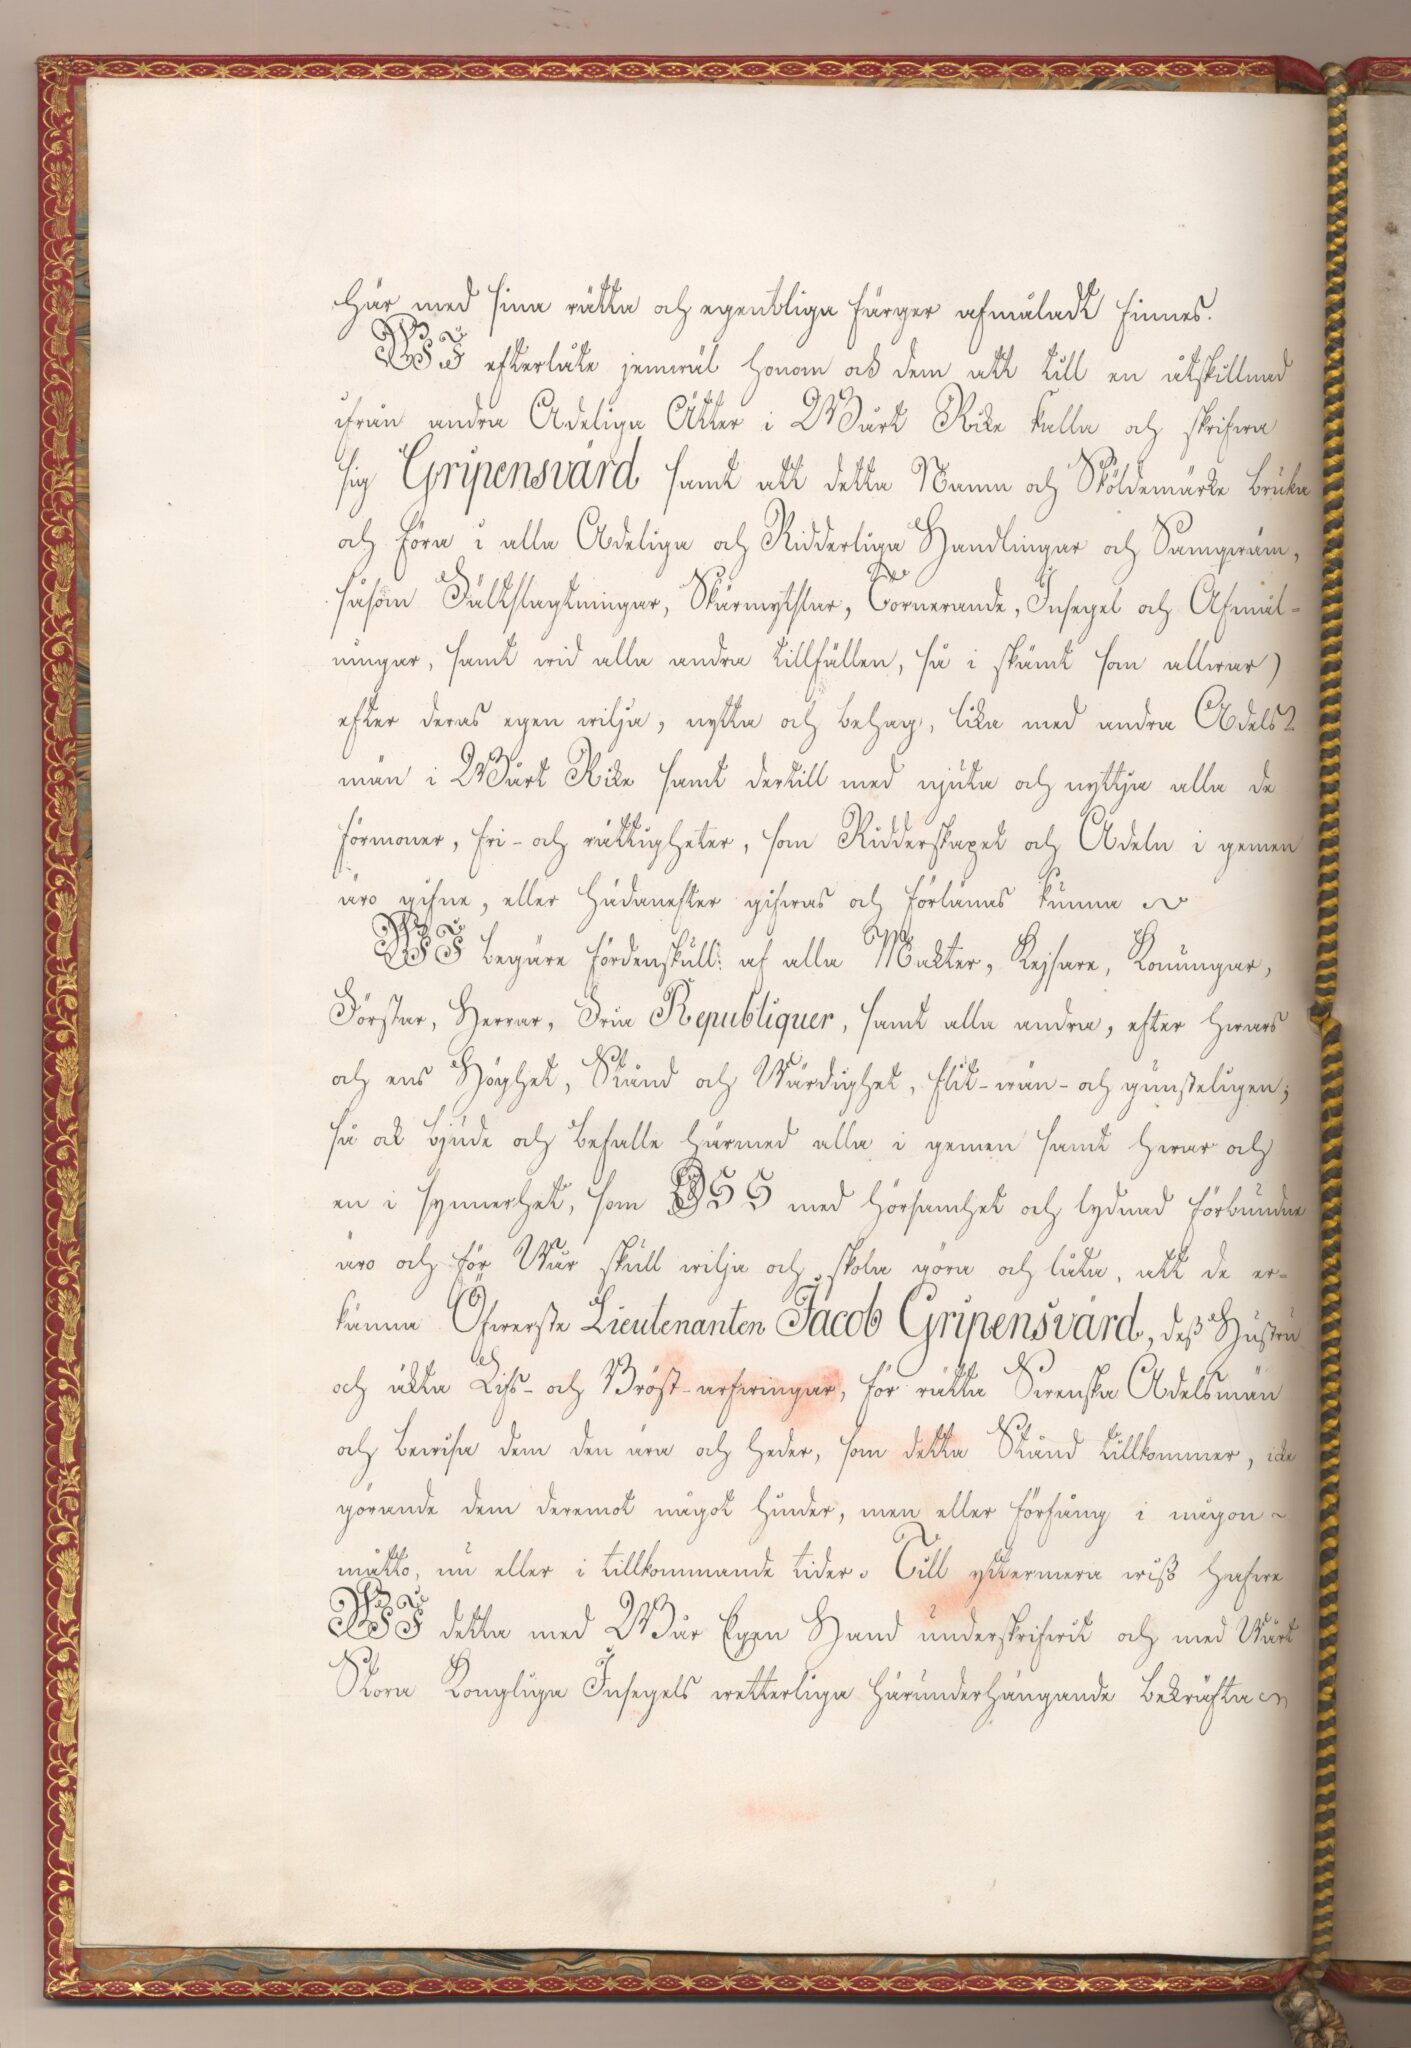 här med sina rätta och egentliga färger afmåladt finnes.
WJ efterlåte jemwäl honom och dem att till en åtskillnad
ifrån andra Adeliga Ätter i Wårt Rike kalla och skrifwa
sig Gripensvärd samt att detta Namn och Sköldemärke bruka
och föra i alla Adeliga och Ridderliga Handlingar och Samqwäm,
såsom Fältslagtningar, Skärmytslar, Tornerande, Insegel och Afmål-
ningar, samt wid alla andra tillfällen, så i skämt som allwar,
efter deras egen wilja, nytta och behag, lika med andra Adels-
män i Wårt Rike samt dertill med njuta och nyttja alla de
förmoner, fri- och rättigheter, som Ridderskapet och Adeln i gemen
äro gifne, eller hädanefter gifwas och förlänas kunna
WJ begäre fördenskull af alla Makter, Kejsare, Konungar,
Förstar, Herrar, Fria Republiquer, samt alla andra, efter hwars
och ens Höghet, Stånd och Wärdighet, flit-wän- och gunsteligen;
så ock bjude och befalle härmed alla i gemen samt hwar och
en i synnerhet, som OSS med hörsamhet och lydnad förbundne
äro och för Wår skull wilja och skola göra och låta, att de er-
känna Öfwerste Lieutenanten Jacob Gripensvärd, deß Hustru
och äkta Lifs- och Bröst-arfwingar, för rätta Swenska Adelsmän
och bewisa dem den ära och heder, som detta Stånd tillkommer, icke
görande dem deremot något hinder, men eller förfång i någon
måtto, nu eller i tillkommande tider. Till yttermera wiß hafwe
WJ detta med Wår Egen Hand underskrifwit och med Wårt
Stora Kongliga Insegels wetterliga härunderhängande bekräfta